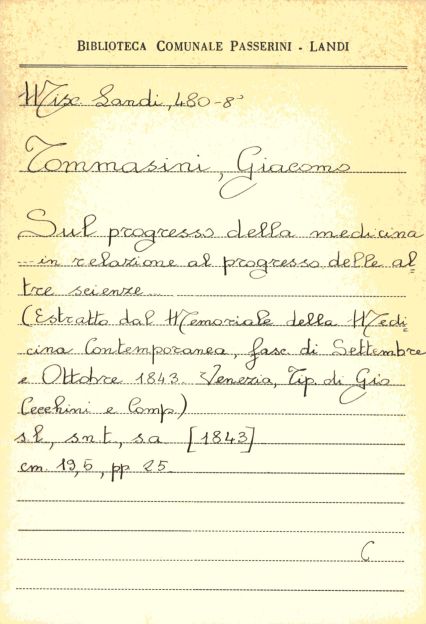 BIBLIOTECA COMUNALE PASSERINI - LANDI
Misc. Landi, 480-8°
Tommasini, Giacomo
Sul progresso della medicina
in relazione al progresso delle al=
tre scienze
(Estratto dal Memoriale della Medi=
cina Contemporanea, fasc. di Settembre
e Ottobre 1843. Venezia, Tip. di Gio
Cecchini e Comp.)
s.l., s.n.t., s.a. [1843]
cm. 19,5, pp. 25.
C